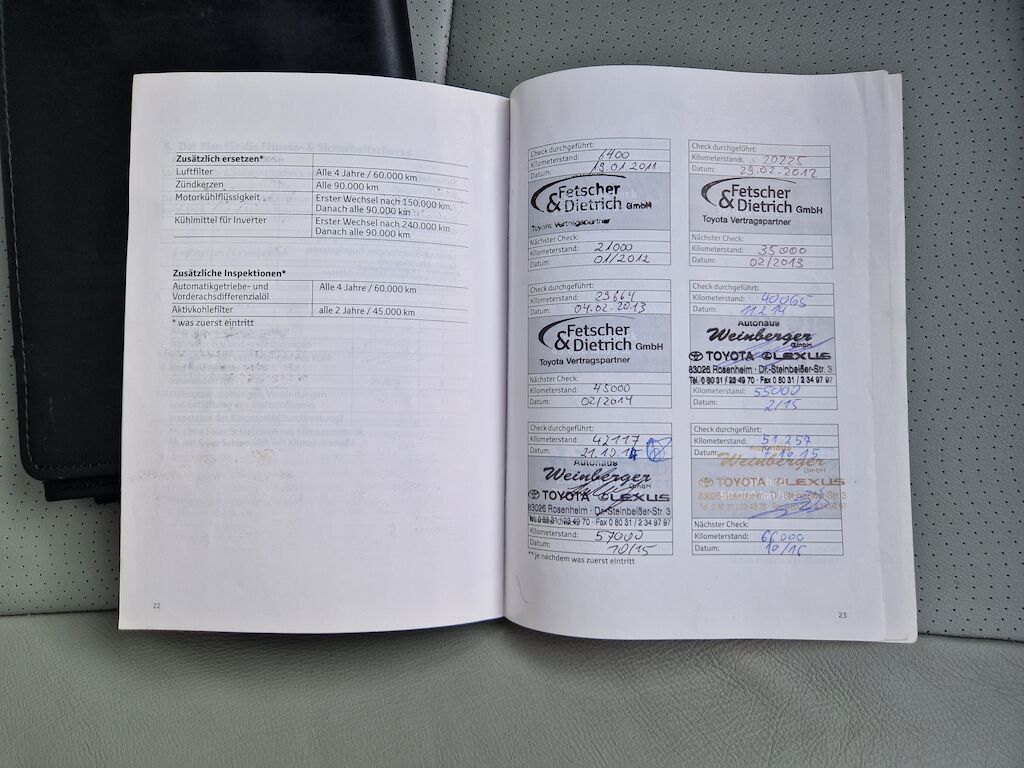 Zusätzlich ersetzen*
Luftfilter Alle 4 Jahre / 60.000 km
Zündkerzen Alle 90.000 km
Motorkühlflüssigkeit Erster Wechsel nach 150.000 km,
Danach alle 90.000 km
Kühlmittel für Inverter Erster Wechsel nach 240.000 km
Danach alle 90.000 km
Zusätzliche Inspektionen*
Automatikgetriebe- und Alle 4 Jahre / 60.000 km
Vorderachsdifferenzialöl
Aktivkohlefilter alle 2 Jahre / 45.000 km
* was zuerst eintritt
22
Check durchgeführt:
Kilometerstand: 1400
Datum: 19.01.2011
Fetscher
& Dietrich GmbH
Toyota Vertragspartner
Nächster Check:
Kilometerstand: 21000
Datum: 01/2012
Check durchgeführt:
Kilometerstand: 20225
Datum: 29.02-2012
Fetscher
& Dietrich GmbH
Toyota Vertragspartner
Nächster Check:
Kilometerstand: 35000
Datum: 02/2013
Check durchgeführt:
Kilometerstand: 29664
Datum: 04.02-2013
Fetscher
& Dietrich GmbH
Toyota Vertragspartner
Nächster Check:
Kilometerstand: 45000
Datum: 02/2014
Check durchgeführt:
Kilometerstand: 40065
Datum: 11.2.14
Autohaus
Weinberger
GmbH
TOYOTA LEXUS
83026 Rosenheim · Dr.-Steinbeißer-Str. 3
Tel. 0 80 31 / 23 49 70 · Fax 0 80 31 / 2 34 97 97
Kilometerstand: 55000
Datum: 2/15
Check durchgeführt:
Kilometerstand: 42117
Datum: 21.10.14
Autohaus
Weinberger
GmbH
TOYOTA LEXUS
83026 Rosenheim · Dr.-Steinbeißer-Str. 3
Tel. 0 80 31 / 23 49 70 · Fax 0 80 31 / 2 34 97 97
Kilometerstand: 57000
Datum: 10/15
** je nachdem was zuerst eintritt
Check durchgeführt:
Kilometerstand: 51.257
Datum: 10.15
Autohaus
Weinberger
GmbH
TOYOTA LEXUS
83026 Rosenheim · Dr.-Steinbeißer-Str. 3
Tel. 0 80 31 / 23 49 70 · Fax 0 80 31 / 2 34 97 97
Nächster Check:
Kilometerstand: 66000
Datum: 10/16
23